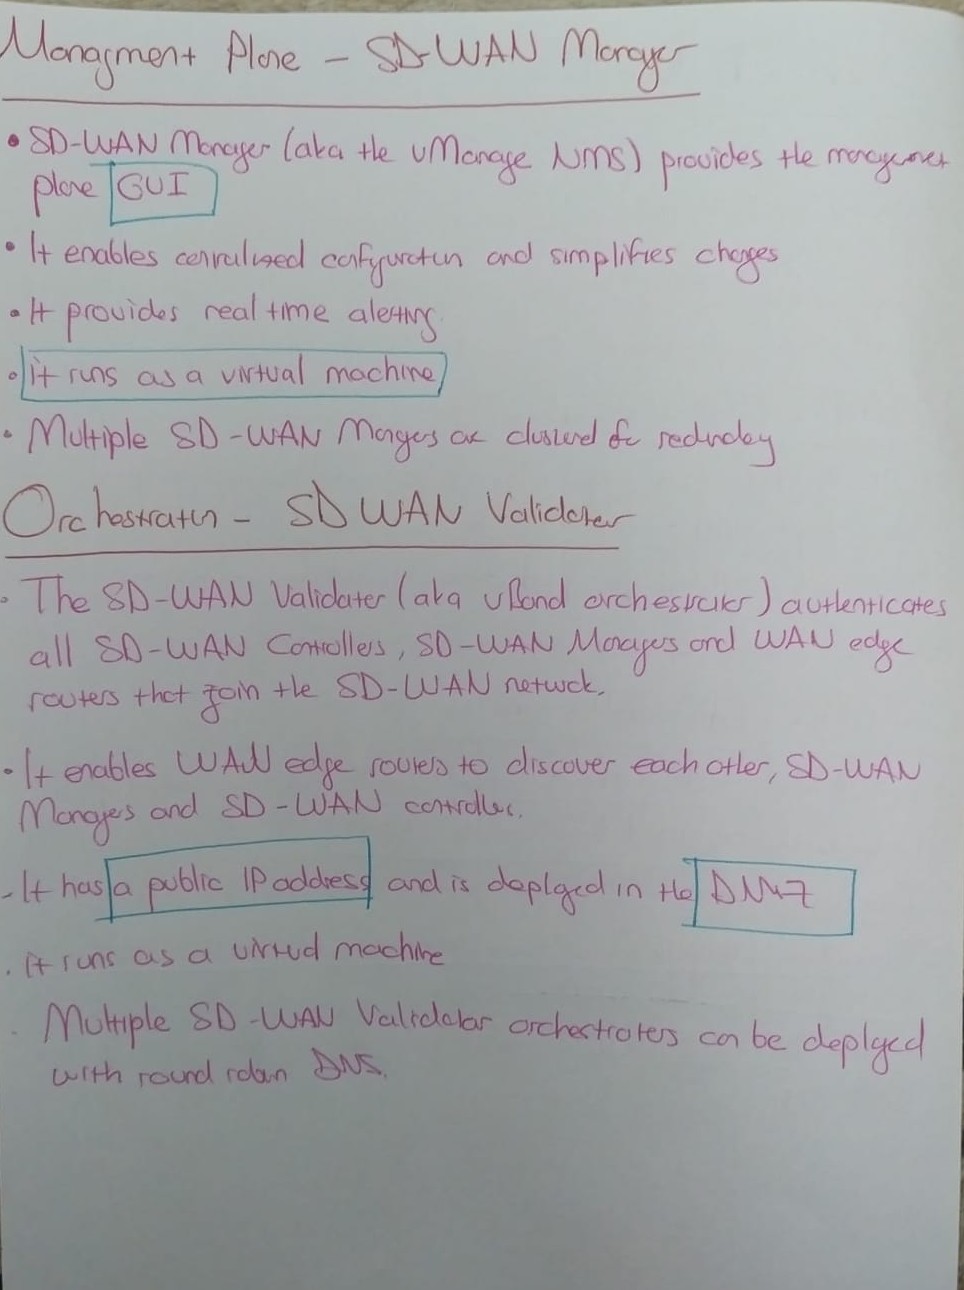 Managment Plane - SD-WAN Manager
• SD-WAN Manager (aka the vManage NMS) provides the management
plane GUI
• It enables centralised configuration and simplifies changes
• It provides real time alerting
• it runs as a virtual machine
• Multiple SD-WAN Mangers are clustered for redunday
Orchestration - SD WAN Validater
• The SD-WAN Validater (aka vBond orchestrater) authenticates
all SD-WAN Controllers, SD-WAN Manages and WAN edge
routers that join the SD-WAN network.
• It enables WAN edge routers to discover each other, SD-WAN
Manages and SD-WAN controller.
- It has a public IP address and is deployed in the DMZ
. it runs as a virtual machine
. Multiple SD-WAN Validator orchestraters can be deployed
with round robin DNS.